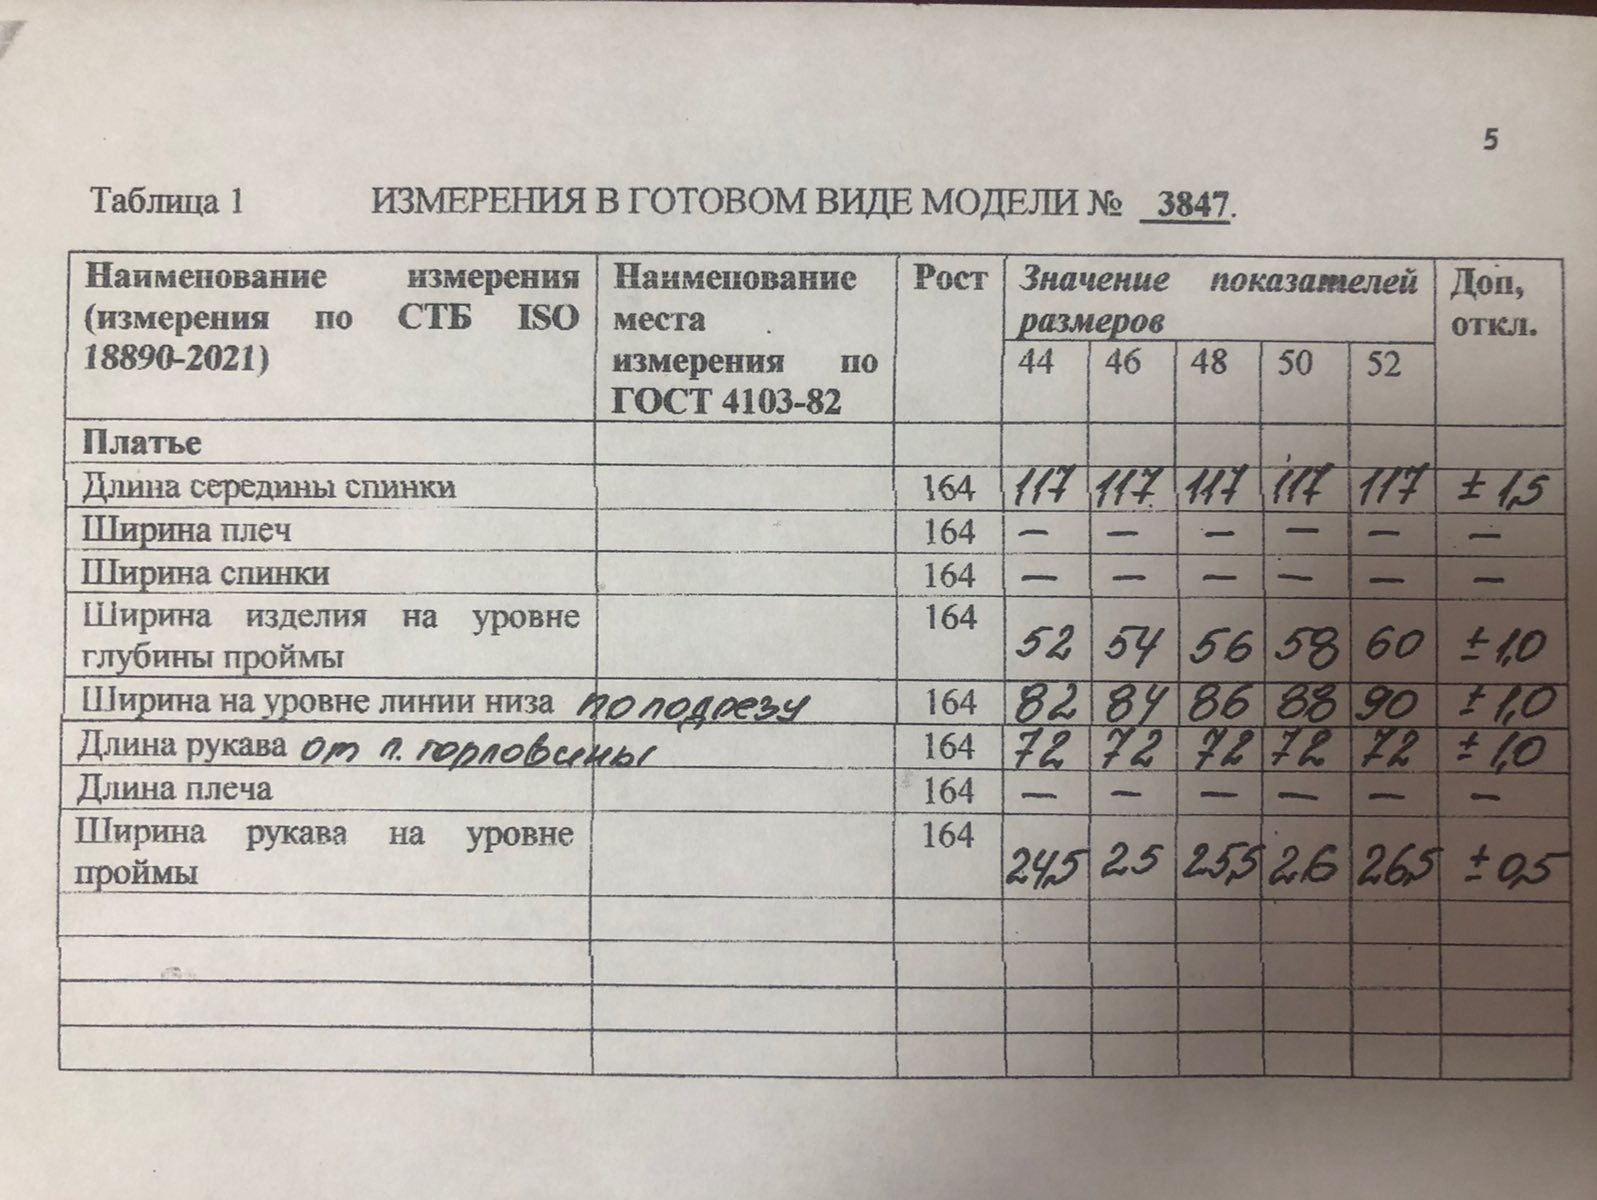 5
Таблица 1 ИЗМЕРЕНИЯ В ГОТОВОМ ВИДЕ МОДЕЛИ № 3847.
Наименование измерения (измерения по СТБ ISO 18890-2021) Наименование места измерения по ГОСТ 4103-82 Рост Значение показателей размеров Доп, откл.
44 46 48 50 52
Платье
Длина середины спинки 164 117 117 117 117 117 ± 1,5
Ширина плеч 164 — — — — — —
Ширина спинки 164 — — — — — —
Ширина изделия на уровне глубины проймы 164 52 54 56 58 60 ± 1,0
Ширина на уровне линии низа по подрезу 164 82 84 86 88 90 ± 1,0
Длина рукава от п. горловины 164 72 72 72 72 72 ± 1,0
Длина плеча 164 — — — — — —
Ширина рукава на уровне проймы 164 24,5 25 25,5 26 26,5 ± 0,5